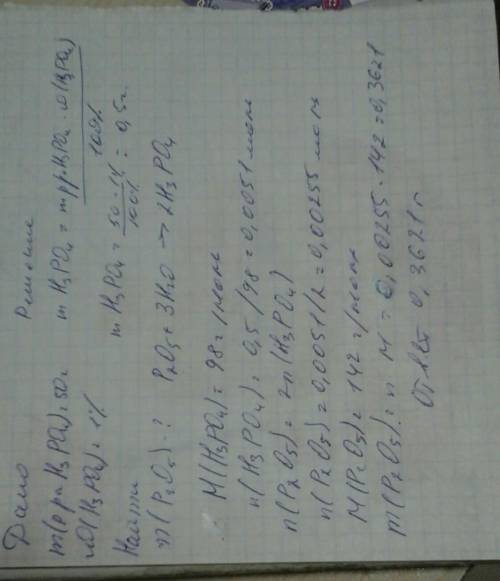 Дано
m(р-ра H3PO4)=50г
ω(H3PO4)=1%
Найти
m(P2O5)-?
Решение
m H3PO4 = m рр. H3PO4 · ω(H3PO4) / 100%
m H3PO4 = 50·1% / 100% = 0,5г.
P2O5+3H2O → 2H3PO4
M(H3PO4)=98г/моль
n(H3PO4)=0,5/98=0,0051моль
n(P2O5)=2n(H3PO4)
n(P2O5)=0,0051/2=0,00255 моль
M(P2O5)=142г/моль
m(P2O5)=n·M=0,00255·142=0,3621
Ответ 0,3621г